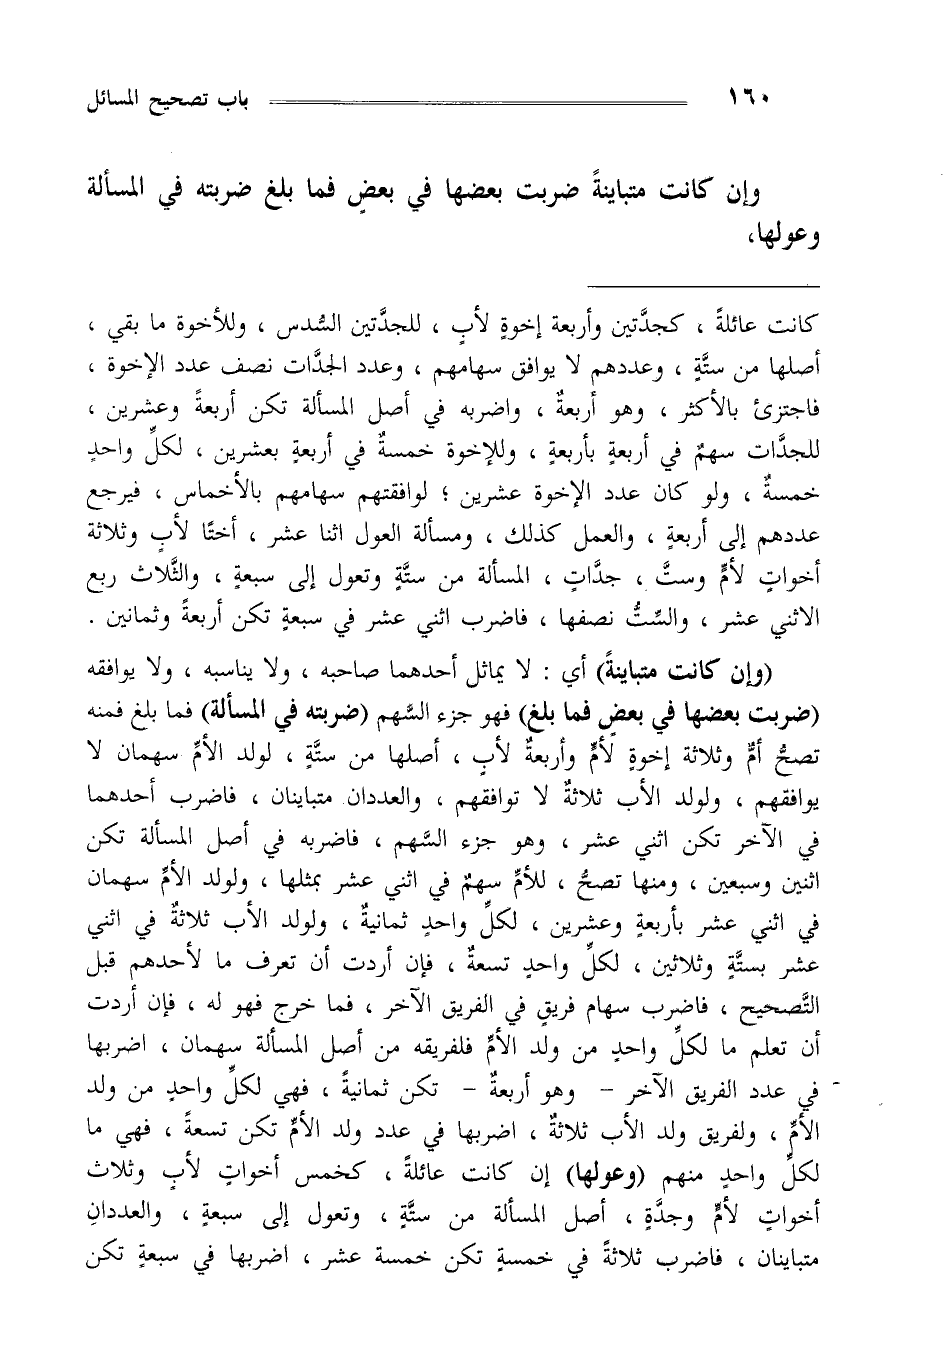 ١٦٠ باب تصحيح المسائل
وإن كانت متباينةً ضربت بعضها في بعضٍ فما بلغ ضربته في المسألة
وعولها،
كانت عائلةً ، كجدَّتين وأربعة إخوةٍ لأبٍ ، للجدَّتين السُّدس ، وللأخوة ما بقي ،
أصلها من ستَّةٍ ، وعددهم لا يوافق سهامهم ، وعدد الجدَّات نصف عدد الإخوة ،
فاجتزئ بالأكثر ، وهو أربعةٌ ، واضربه في أصل المسألة تكن أربعةً وعشرين ،
للجدَّات سهمٌ في أربعةٍ بأربعةٍ ، وللإخوة خمسةٌ في أربعةٍ بعشرين ، لكلِّ واحدٍ
خمسةٌ ، ولو كان عدد الإخوة عشرين ؛ لوافقتهم سهامهم بالأخماس ، فيرجع
عددهم إلى أربعةٍ ، والعمل كذلك ، ومسألة العول اثنا عشر ، أختًا لأبٍ وثلاثة
أخواتٍ لأمٍّ وستُّ ، جدَّاتٍ ، المسألة من ستَّةٍ وتعول إلى سبعةٍ ، والثَّلاث ربع
الاثني عشر ، والسِّتُّ نصفها ، فاضرب اثني عشر في سبعةٍ تكن أربعةً وثمانين .
(وإن كانت متباينةً) أي : لا يماثل أحدهما صاحبه ، ولا يناسبه ، ولا يوافقه
(ضربت بعضها في بعضٍ فما بلغ) فهو جزء السَّهم (ضربته في المسألة) فما بلغ فمنه
تصحُّ أمٌّ وثلاثة إخوةٍ لأمٍّ وأربعةٌ لأبٍ ، أصلها من ستَّةٍ ، لولد الأمِّ سهمان لا
يوافقهم ، ولولد الأب ثلاثةٌ لا توافقهم ، والعددان متباينان ، فاضرب أحدهما
في الآخر تكن اثني عشر ، وهو جزء السَّهم ، فاضربه في أصل المسألة تكن
اثنين وسبعين ، ومنها تصحُّ ، للأمِّ سهمٌ في اثني عشر بمثلها ، ولولد الأمِّ سهمان
في اثني عشر بأربعةٍ وعشرين ، لكلِّ واحدٍ ثمانيةٌ ، ولولد الأب ثلاثةٌ في اثني
عشر بستَّةٍ وثلاثين ، لكلِّ واحدٍ تسعةٌ ، فإن أردت أن تعرف ما لأحدهم قبل
التَّصحيح ، فاضرب سهام فريقٍ في الفريق الآخر ، فما خرج فهو له ، فإن أردت
أن تعلم ما لكلِّ واحدٍ من ولد الأمِّ فلفريقه من أصل المسألة سهمان ، اضربها
في عدد الفريق الآخر – وهو أربعةٌ – تكن ثمانيةً ، فهي لكلِّ واحدٍ من ولد
الأمِّ ، ولفريق ولد الأب ثلاثةٌ ، اضربها في عدد ولد الأمِّ تكن تسعةً ، فهي ما
لكلِّ واحدٍ منهم (وعولها) إن كانت عائلةً ، كخمس أخواتٍ لأبٍ وثلاث
أخواتٍ لأمٍّ وجدَّةٍ ، أصل المسألة من ستَّةٍ ، وتعول إلى سبعةٍ ، والعددانِ
متباينان ، فاضرب ثلاثةً في خمسةٍ تكن خمسة عشر ، اضربها في سبعةٍ تكن